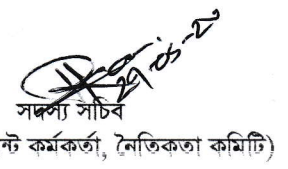 ২৭-০৮-২০
সদস্য সচিব
ন্ট কর্মকর্তা, নৈতিকতা কমিটি)